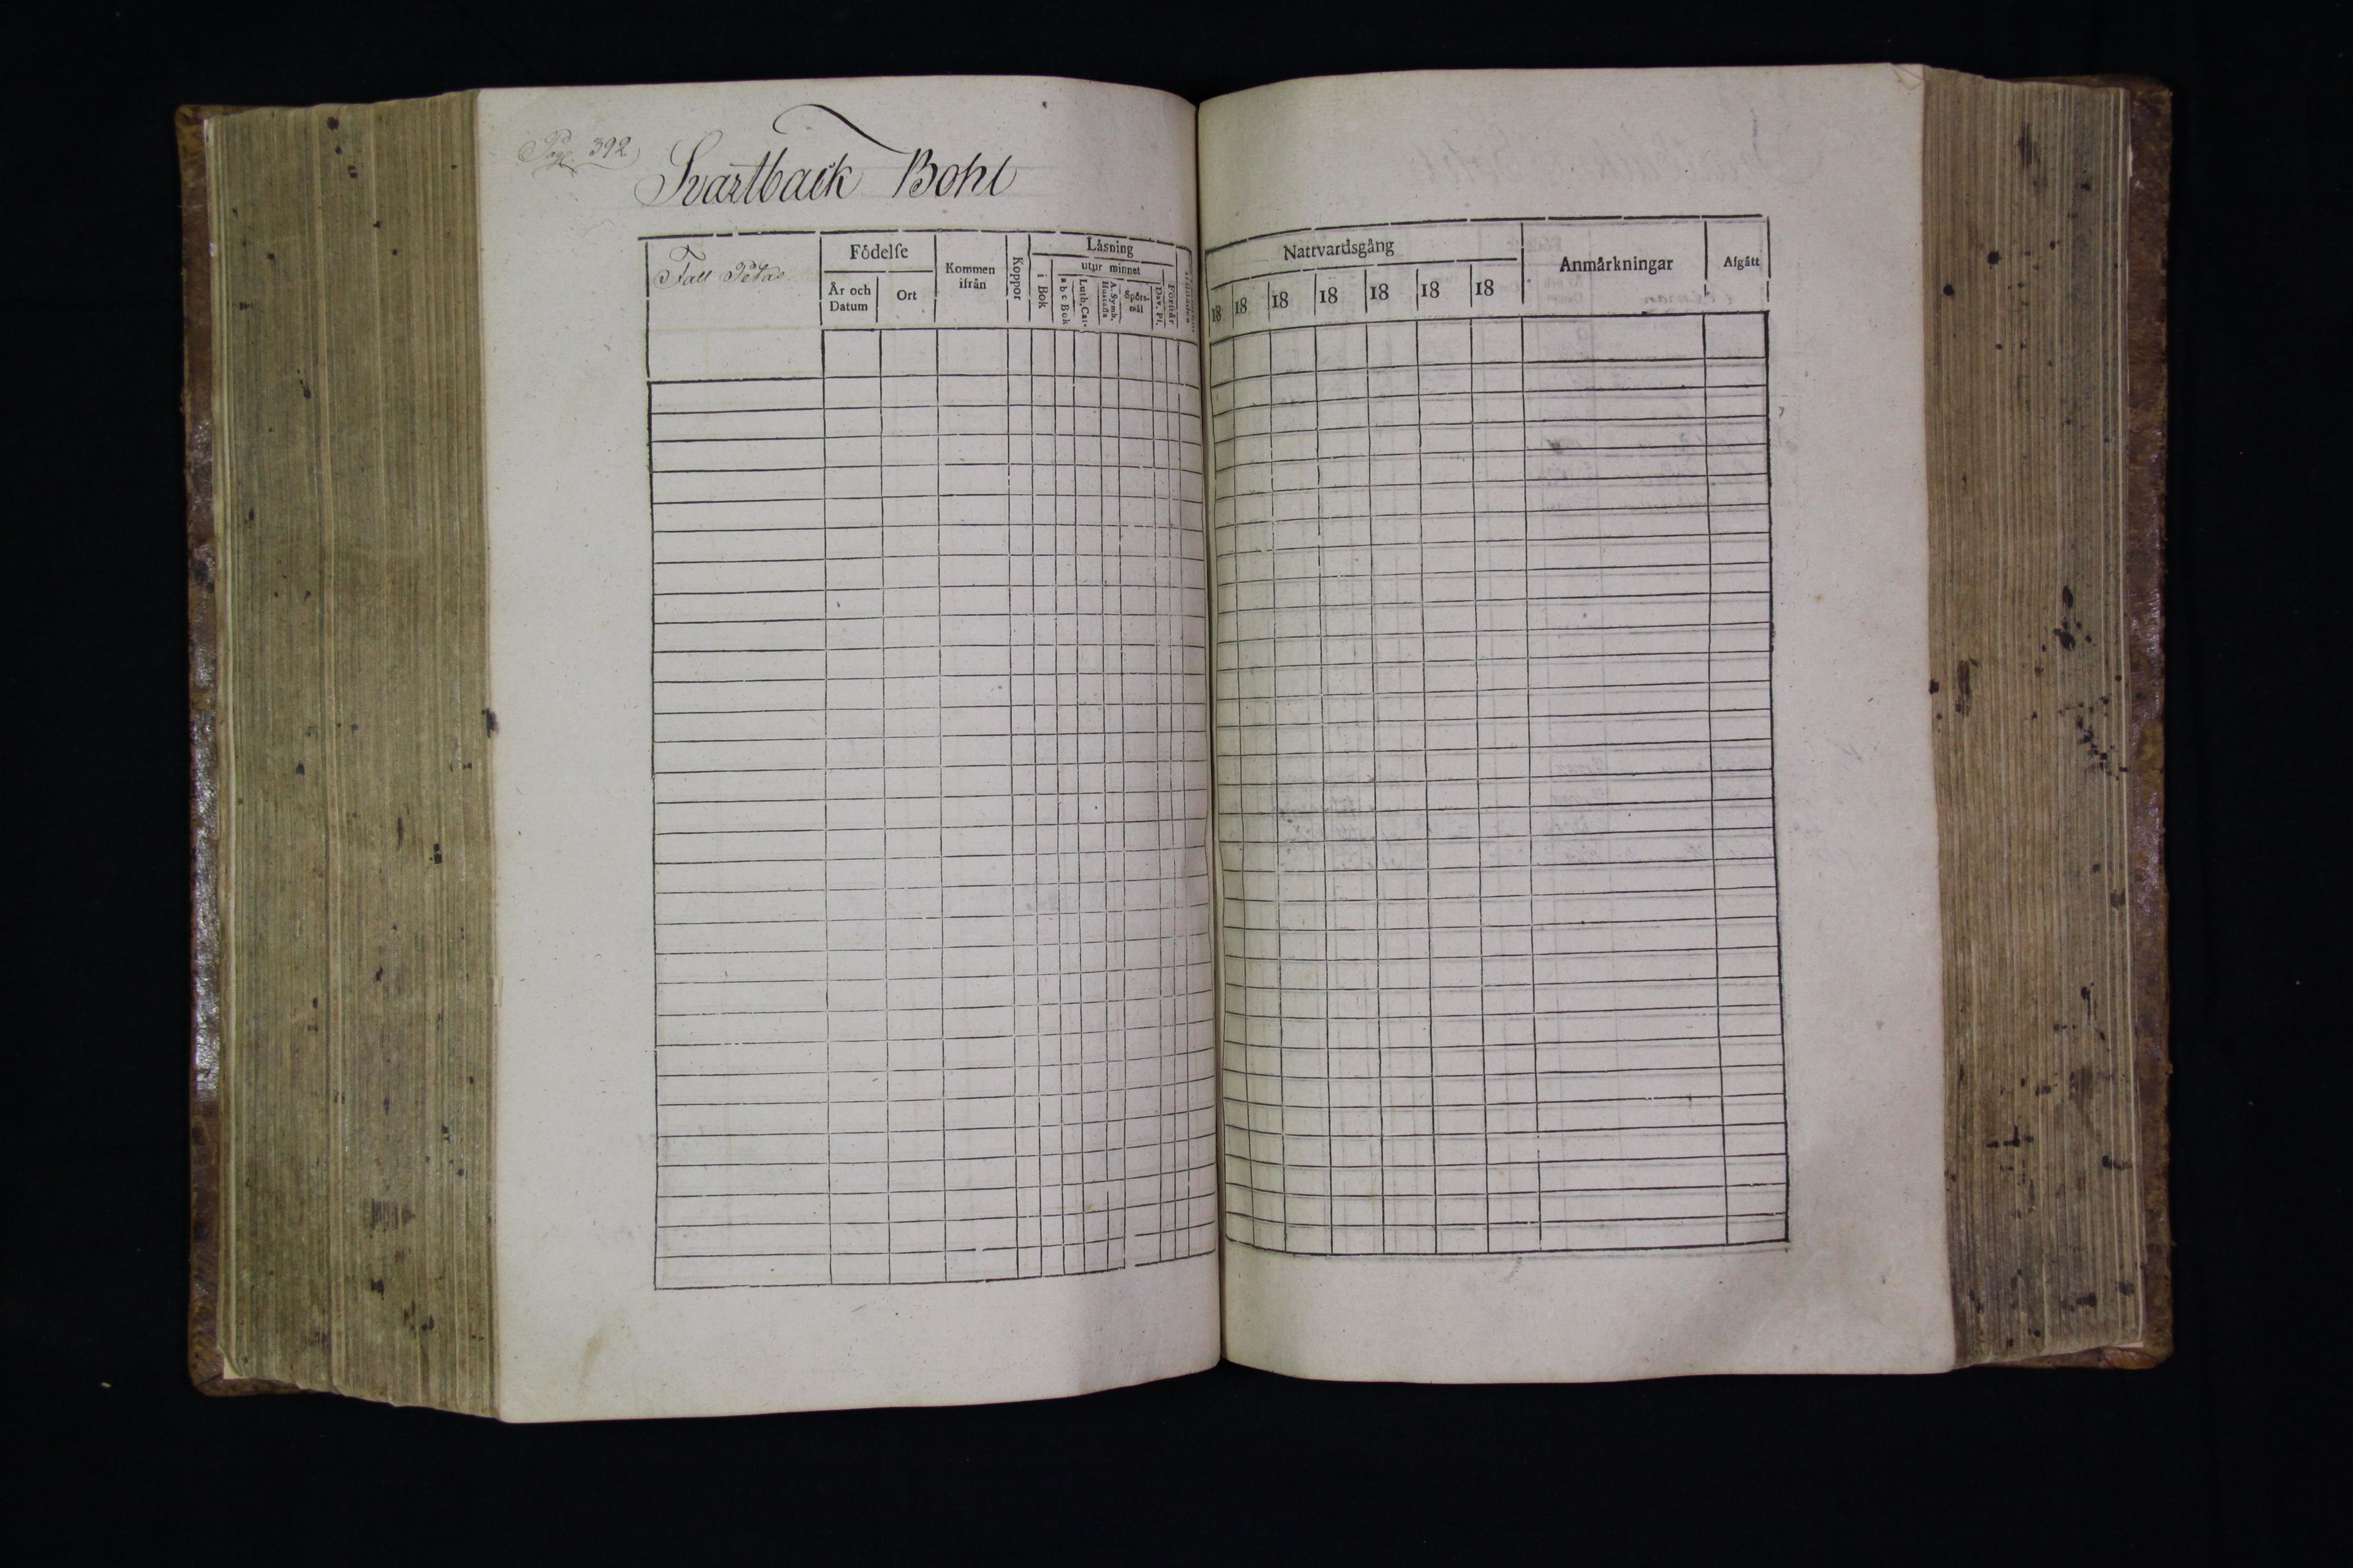 Page 392
Svartback Bohl
Fall Petas
Födelse
År och Datum
Ort
Kommen ifrån
Koppor
Läsning
i Bok
utur minnet
a b c Bok
Luth. Cat.
A. Symb. Hustafla
Spörs-mål
Dav. Ps.
Förstår
Nattvardsgång
18 18 18 18 18 18 18
Anmärkningar
Afgått